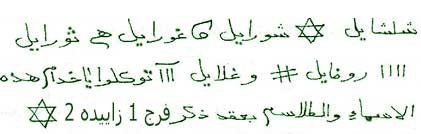 شلشايل ✡ شورايل ۵ غورايل هي ثورايل
١١١١ روفايل # وغلايل ١١١ توكلوا ياخدام هده
الاسماء والطلاسم بعقد ذكر فرج 1 زاييده 2 ✡